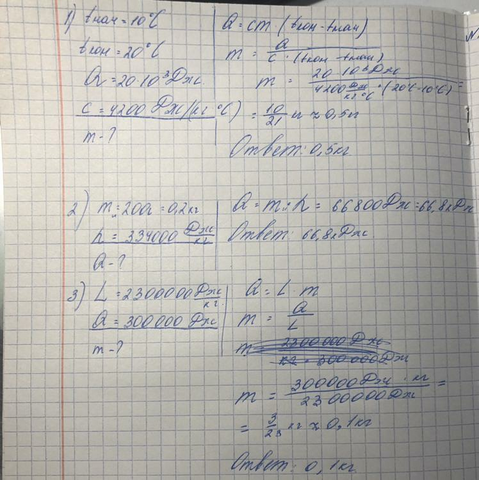 1) tнач = 10°C
tкон = 20°C
Q = 20·10³ Дж
c = 4200 Дж/(кг °C)
m - ?
Q = cm (tкон - tнач)
m = Q / c · (tкон - tнач)
m = 20 10³ Дж / 4200 Дж/кг °C · (20°C - 10°C)
= 10/21 кг ≈ 0,5 кг
Ответ: 0,5 кг
2) m = 200г = 0,2 кг
λ = 334000 Дж/кг
Q - ?
Q = m · λ = 66800 Дж = 66,8кДж
Ответ 66,8кДж
3) L = 2300000 Дж/кг
Q = 300000 Дж
m - ?
Q = L m
m = Q / L
m = 2300000 Дж / кг · 300000 Дж
m = 300000 Дж · кг / 2300000 Дж =
= 3/23 кг ≈ 0,1 кг
Ответ: 0,1 кг